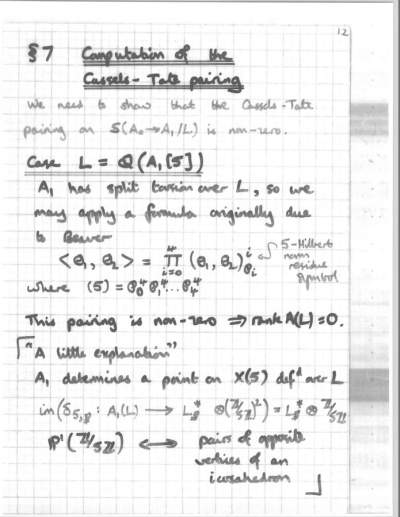 12
§7 Computation of the
Cassels-Tate pairing
We need to show that the Cassels-Tate
pairing on S(A₀→A₁/L) is non-zero.
Case L = Q(A₁[5])
A₁ has split torsion over L, so we
may apply a formula originally due
to Beaver
<θ₁, θ₂> = ∏ᵢ₌₀⁴ (θ₁, θ₂)ⁱ_℘ᵢ
5-Hilbert
norm
residue
symbol
where (5) = ℘₀⁴℘₁⁴...℘₄⁴
This pairing is non-zero ⇒ rank A(L) = 0.
"A little explanation"
A₁ determines a point on X(5) defᵈ over L
im(δ₅,℘ : A₁(L) → L℘* ⊗(ℤ/5ℤ)²) = L℘* ⊗ ℤ/5ℤ
ℙ¹(ℤ/5ℤ) ↔ pairs of opposite
vertices of an
icosahedron